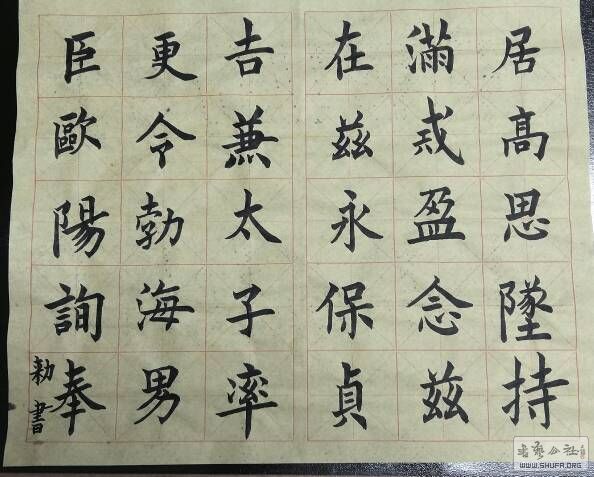 居髙思墜持
滿戒盈念兹
在兹永保貞
吉兼太子率
更令勃海男
臣歐陽詢奉
勅書
书艺公社
WWW.SHUFA.ORG